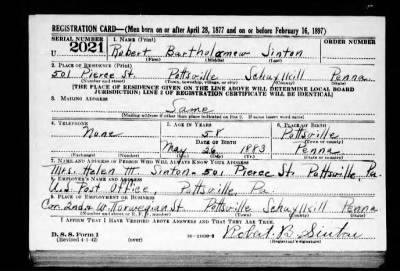 REGISTRATION CARD—(Men born on or after April 28, 1877 and on or before February 16, 1897)
SERIAL NUMBER 1. NAME (Print) ORDER NUMBER
U 2021 Robert Bartholomew Sinton
(First) (Middle) (Last)
2. PLACE OF RESIDENCE (Print)
501 Pierce St. Pottsville Schuylkill Penna
(Number and street) (Town, township, village, or city) (County) (State)
[THE PLACE OF RESIDENCE GIVEN ON THE LINE ABOVE WILL DETERMINE LOCAL BOARD
JURISDICTION; LINE 2 OF REGISTRATION CERTIFICATE WILL BE IDENTICAL]
3. MAILING ADDRESS
Same
[Mailing address if other than place indicated on line 2. If same insert word same]
4. TELEPHONE 5. AGE IN YEARS 6. PLACE OF BIRTH
None 58 Pottsville
DATE OF BIRTH (Town or county)
May 26 1883 Penna
(Exchange) (Number) (Mo.) (Day) (Yr.) (State or country)
7. NAME AND ADDRESS OF PERSON WHO WILL ALWAYS KNOW YOUR ADDRESS
Mrs. Helen M. Sinton - 501 Pierce St. Pottsville, Pa.
8. EMPLOYER'S NAME AND ADDRESS
U.S. Post Office Pottsville, Pa.
9. PLACE OF EMPLOYMENT OR BUSINESS
Cor. 2nd & W. Norwegian St. Pottsville Schuylkill Penna
(Number and street or R. F. D. number) (Town) (County) (State)
I AFFIRM THAT I HAVE VERIFIED ABOVE ANSWERS AND THAT THEY ARE TRUE.
D. S. S. Form 1
(Revised 4-1-42) (over) Robert B Sinton
(Registrant's signature)